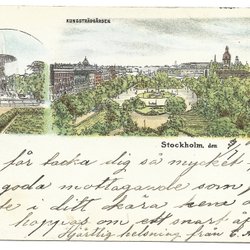 KUNGSTRÄDGÅRDEN
Stockholm, den
får tacka dig så mycket
goda mottagande som
te i ditt kära
hoppas om ett snart
Hjärtlig helsning från